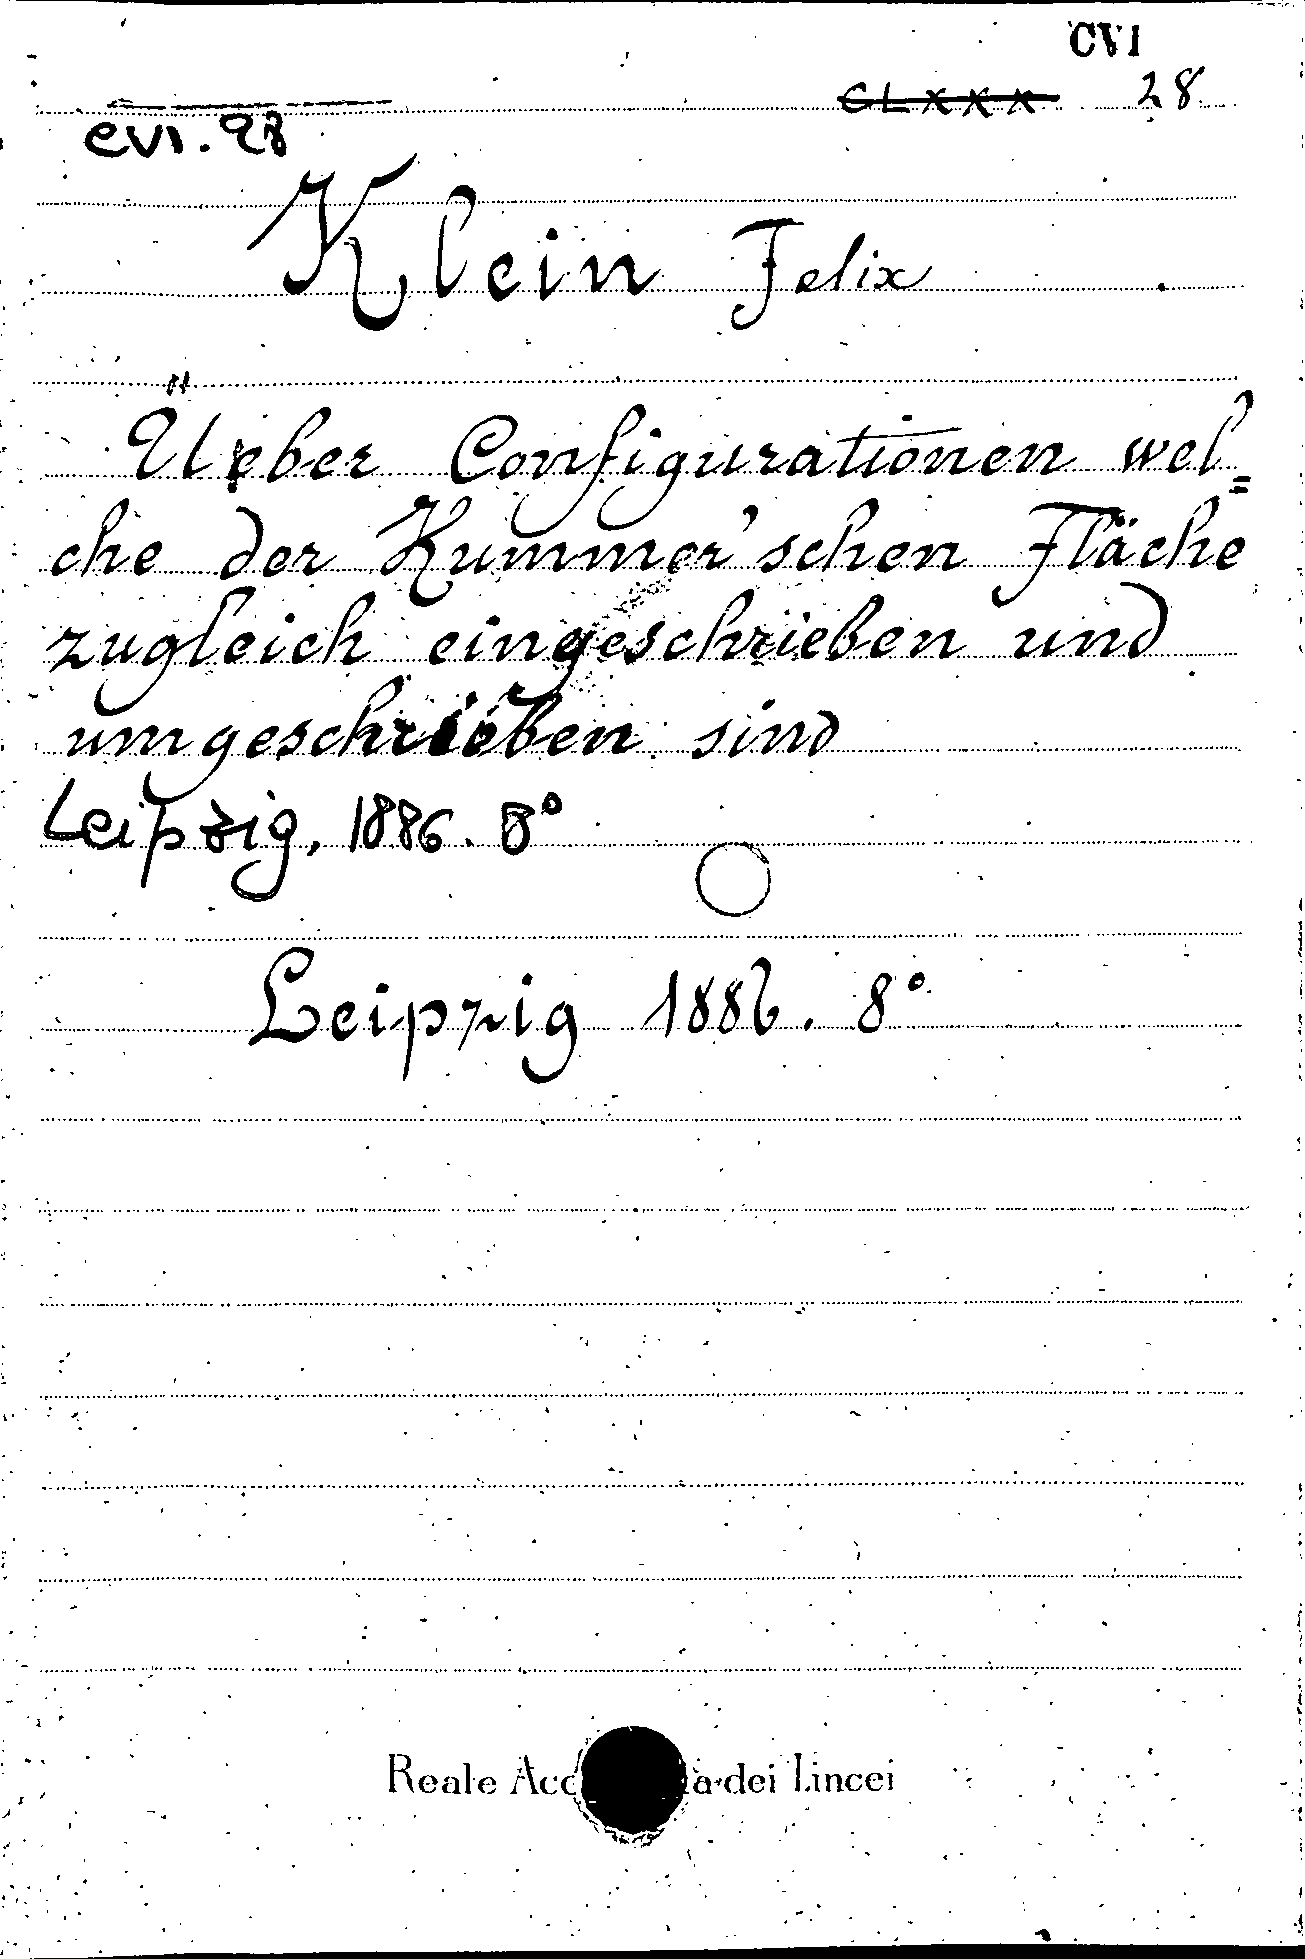 CVI
CLXXX 28
CVI. 28
Klein Felix
Ueber Configurationen wel=
che der Kummer'schen Fläche
zugleich eingeschrieben und
umgeschrieben sind
Leipzig, 1886. 8°
Leipzig 1886. 8°
Reale dei Lincei